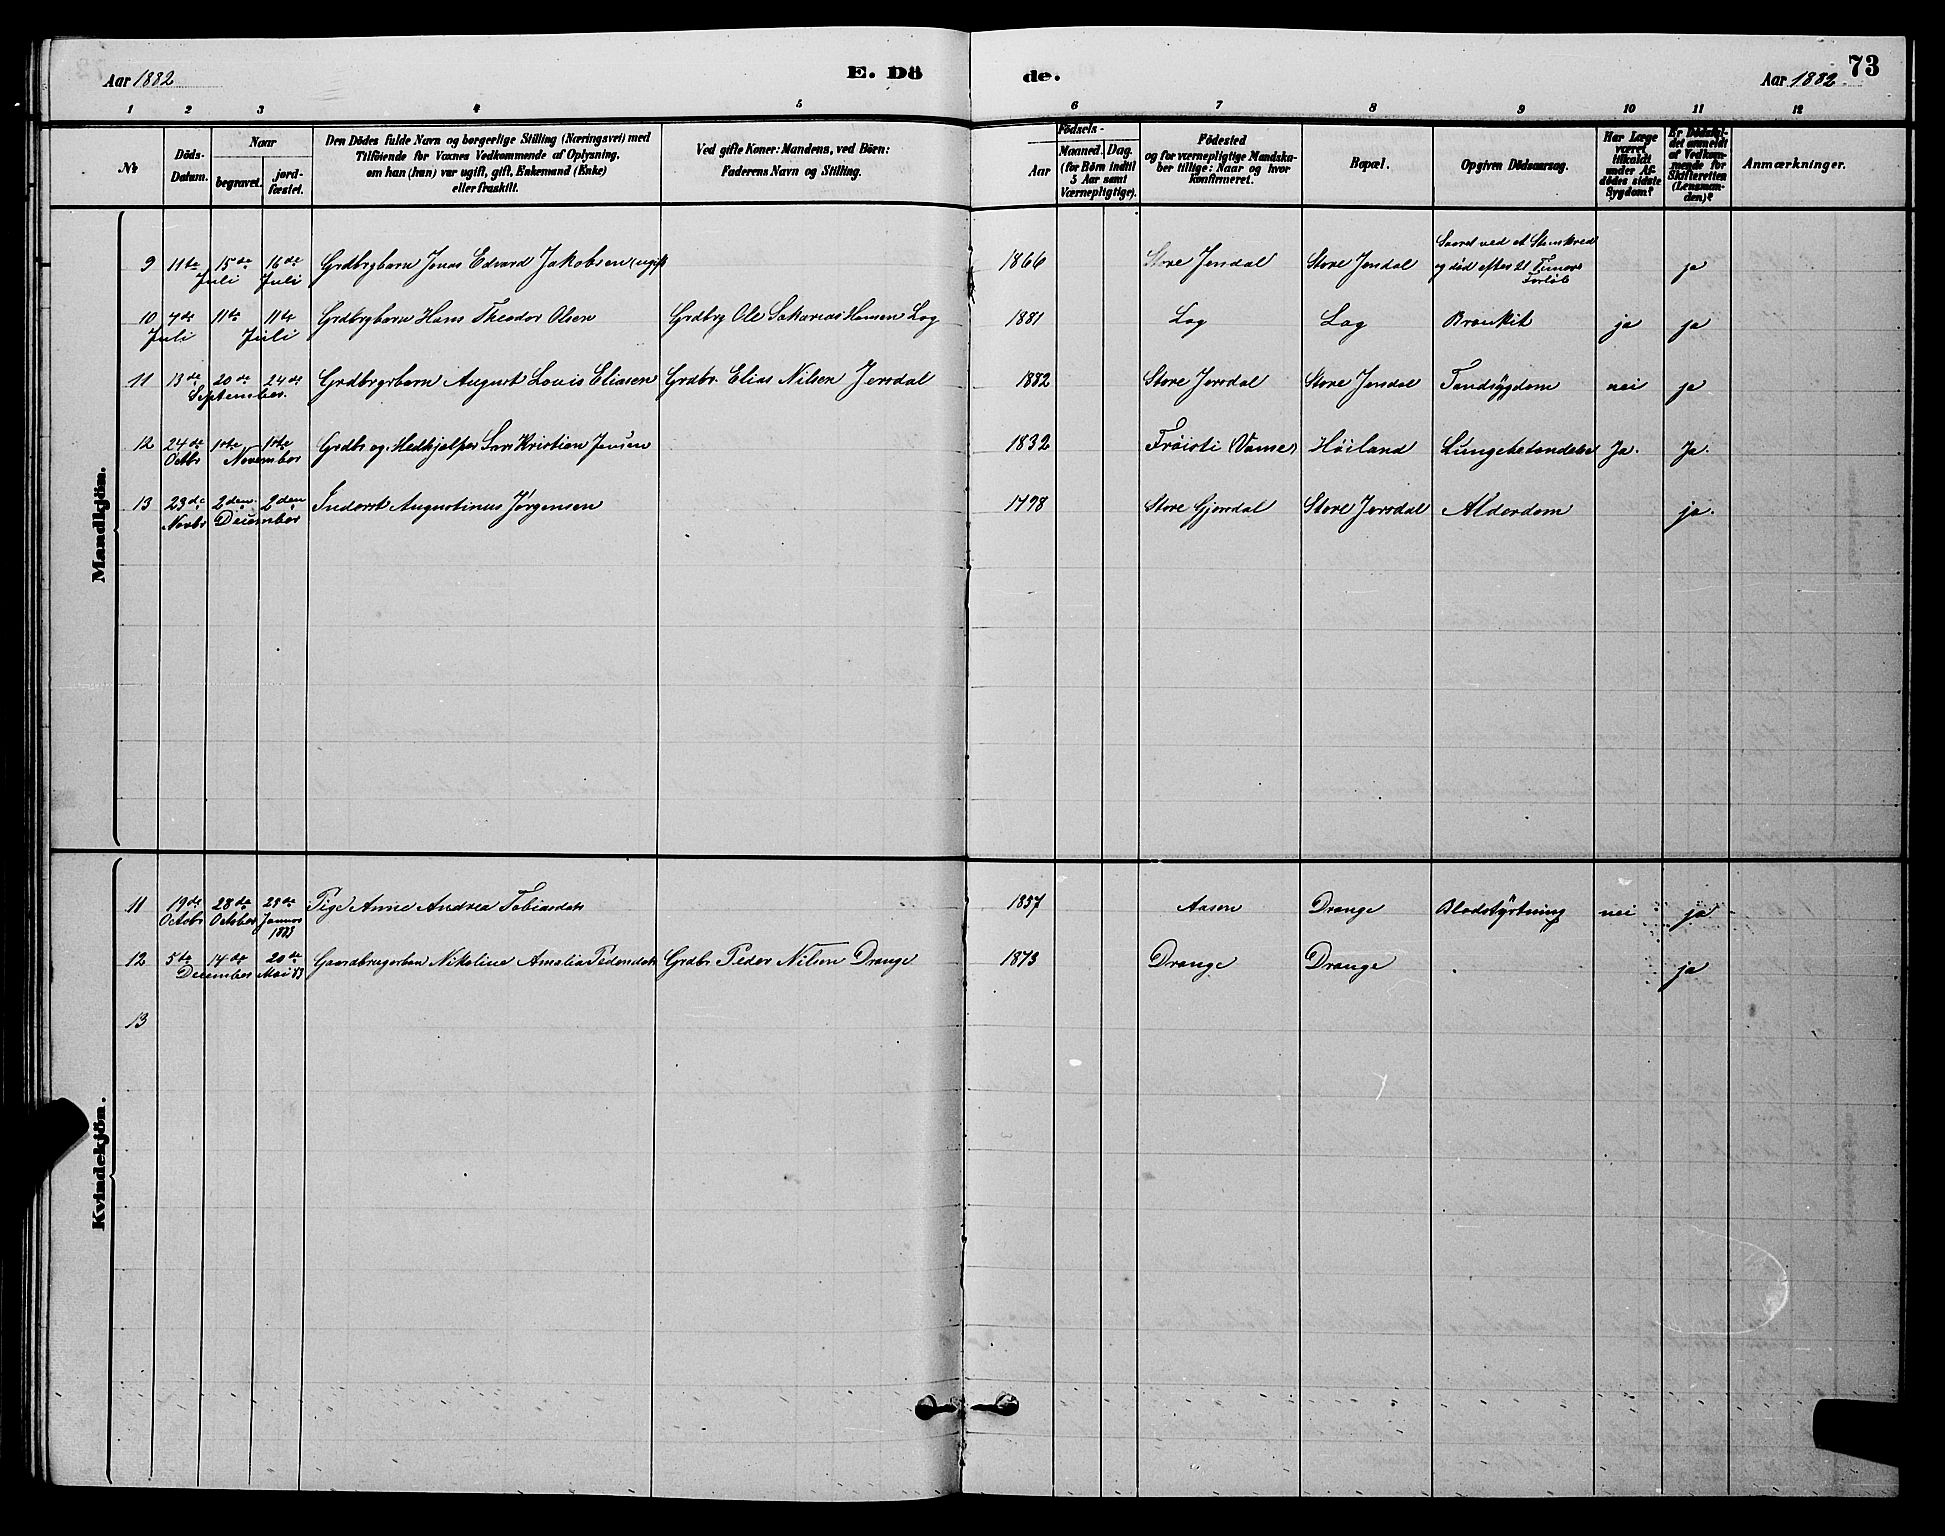 Aar 1882 E. Dö de. Aar 1882 73
1 2 3 4 5 6 7 8 9 10 11 12
№ Döds-Datum. Naar begravet. jord-fæstet. Den Dödes fulde Navn og borgerlige Stilling (Næringsvei) med Tilföiende for Voxnes Vedkommende af Oplysning, om han (hun) var ugift, gift, Enkemand (Enke) eller fraskilt. Ved gifte Koner: Mandens, ved Börn: Faderens Navn og Stilling. Födsels- Aar Maaned. Dag. (for Börn indtil 5 Aar samt Værnepligtige). Födested og for værnepligtige Mandska-ber tillige: Naar og hvor konfirmeret. Bopæl. Opgiven Dödsaarsag. Har Læge været tilkaldt under Af-dödes sidste Sygdom? Er Dödsfal-det anmeldt af Vedkom-mende for Skifteretten (Lensman-den)? Anmærkninger.
Mandkjön.
9 11te 15de Juli 16de Juli Grdbrgbarn Jonas Edvard Jakobsen (ugift 1866 Store Jerdal Store Jerdal Saaret ved et Stenskred og død efter 21 Timers Forløb ja
10 7de Juli 11te 11te Juli Grdbrgbarn Hans Theodor Olsen Grdbrg Ole Sakarias Hansen Log 1881 Log Log Bronkit ja ja
11 13de 20de 24de September. Grdbrgrbarn August Lovis Eliasen Grdbr. Elias Nilsen Jerdal 1882 Store Jerdal Store Jerdal Tandsygdom nei ja
12 24de Octbr 1ste 1ste November Grdbr og Medhjelper Lars Kristian Jensen 1832 Frøisti (Vanse) Høiland Lungebetændelse Ja. Ja.
13 23de Novbr 2den 2den December Inderst Augustinus Jørgensen 1798 Store Gjerdal Store Jerdal Alderdom ja.
Kvindekjön.
11 19de Octobr 28de October 28de Januar 1883 Pige Anne Andrea Tobiasdatr 1857 Aasen Drange Blodstyrtning nei ja
12 5te 14de December 20de Mai 83 Gaardbrugerban Nikoline Amalia Pedersdatr Grdbr. Peder Nilsen Drange 1873 Drange Drange ja
13